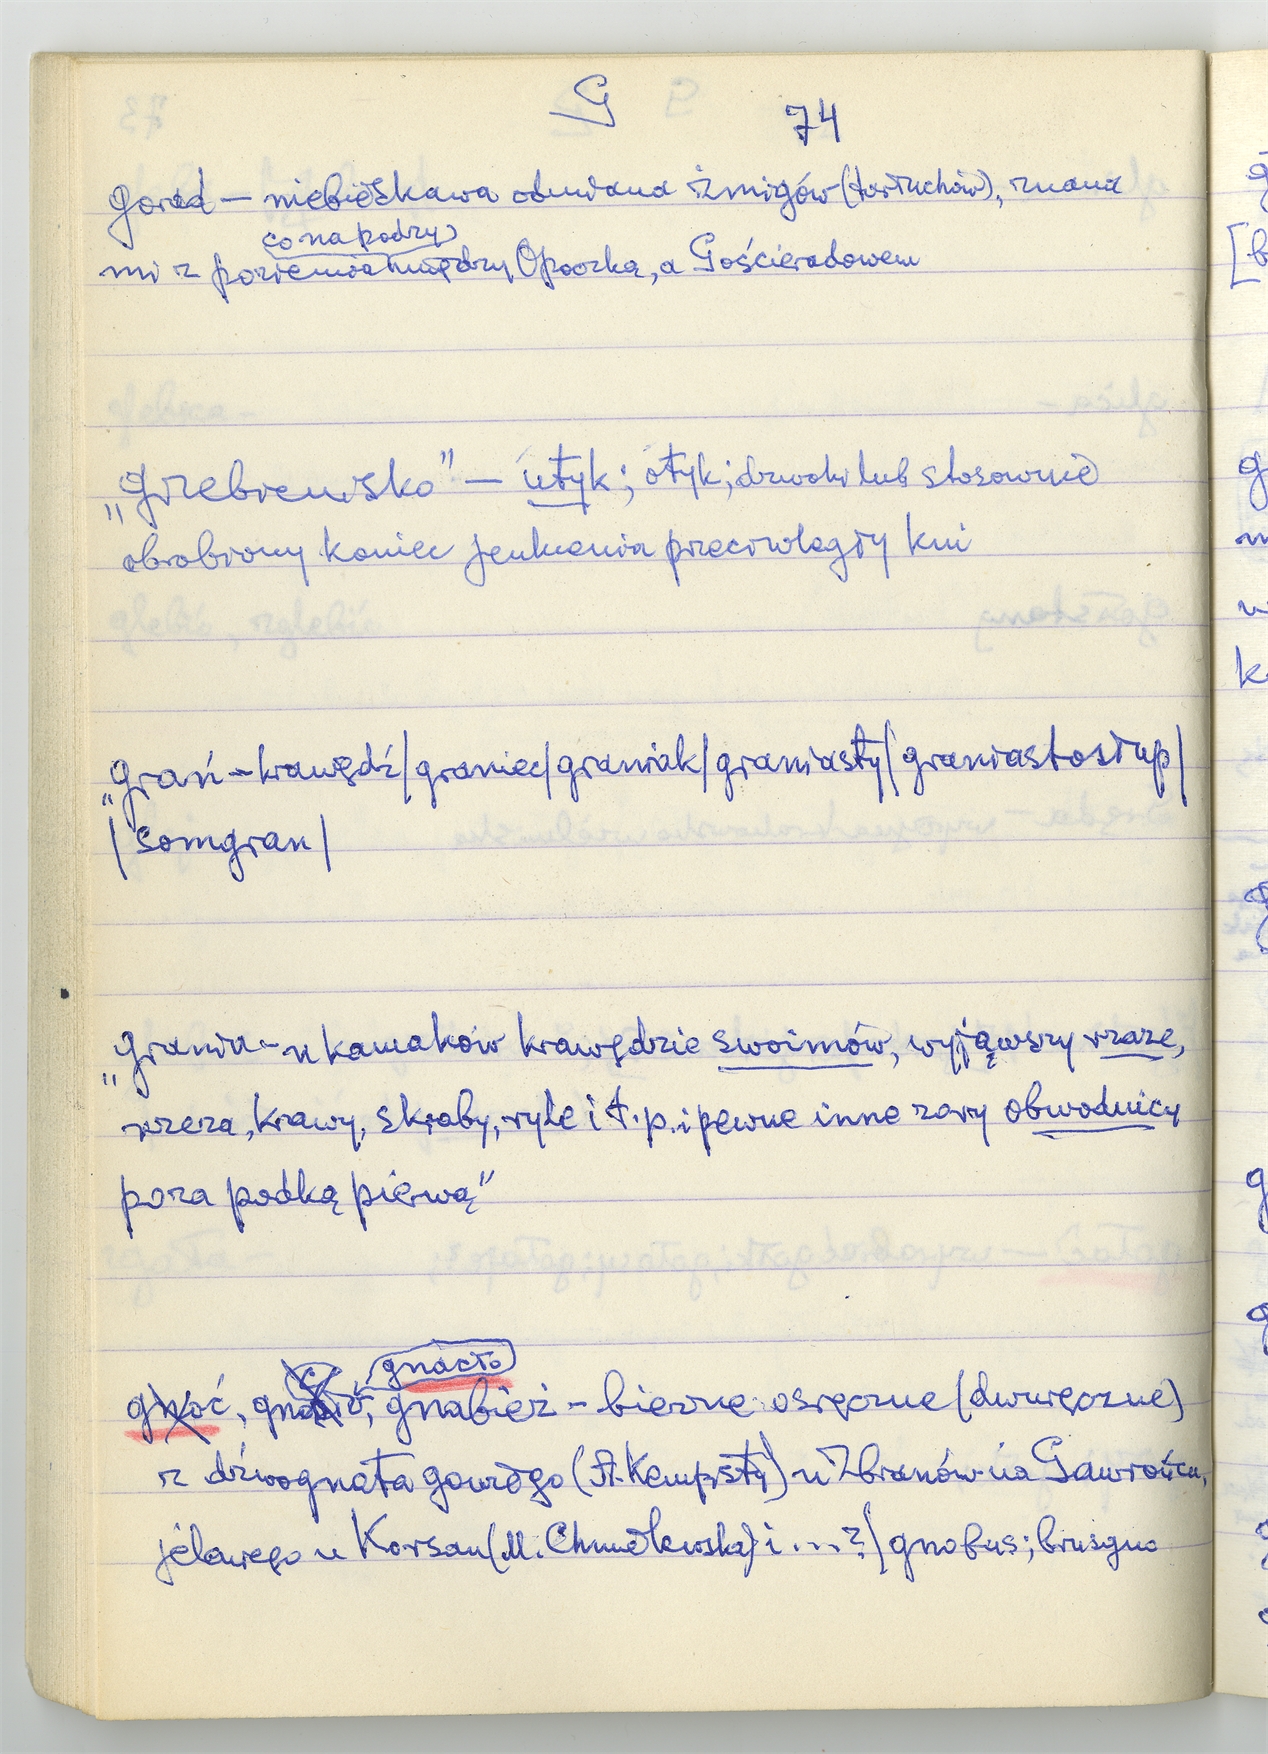 G 74
gorad — niebieskawa odmiana żmigów (tortuchów), znana
co na podzy
mi z poziemia między Opoczką, a Gościeradowem
„grzebieńsko" — útyk; ótyk; dzwoki lub stosownie
obrobiony koniec jenkienia przeciwległy kui
„grań – krawędź | graniec | graniak | graniasty | graniastosłup |
| somgran |
„grania – u kamaków krawędzie swoimów, wyjąwszy rzaze,
rzeza, krawy, skraby, ryle i t.p. i pewne inne zary obwodnicy
poza podką pierwą"
gnacto
gnoć, gnabież – bierne osręczne (dwuręczne)
z drzwognata gowrego (A. Kempisty) u Zbranów na Gawrońcu,
jelawego u Korsau (M. Chmielewska) i ...? | gnobus; brusgno